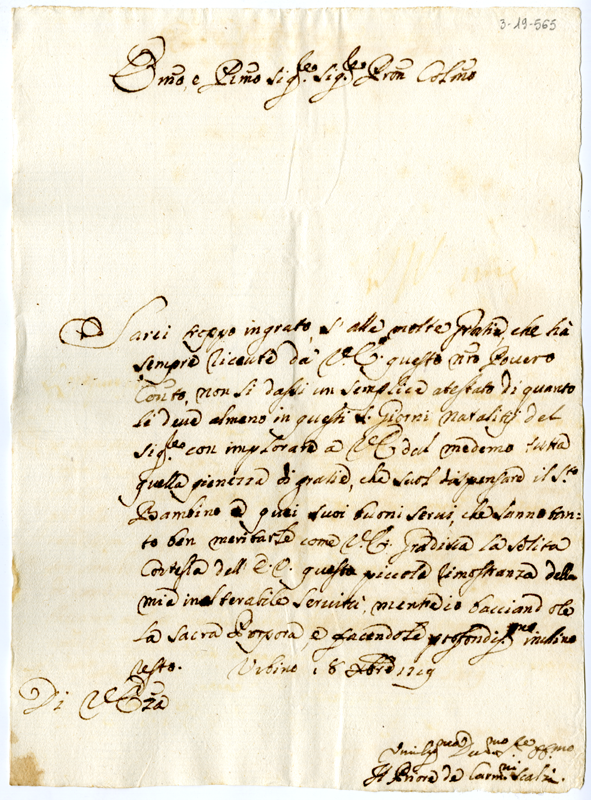 3-19-565
Emo, e Rmo Sigre. Sigre Pron Colmo
Sarei troppo ingrato, s'alle molte gratie, che hà
sempre ricevute dà V. E. questo nro Povero
Conto, non si dassi un semplice atestato di quanto
le deve almeno in questi S. Giorni natalitij del
Sigre con implorare à V. E. dal medemo tutta
quella pienezza di gratie, che suol dispensare il Sto
Bambino à quei suoi buoni servi, che sanno tan=
to ben meritarle come V. E. Gradisca la solita
Cortesia dell' E. V. questa piccola rimostranza della
mia inalterabile servitù, mentre io bacciandole
la Sacra Porpora, e facendole profondissmo inchino
resto. Urbino 18 Xbre 1719
Di V. Emza
Il Priore de Carmni Scalzi.